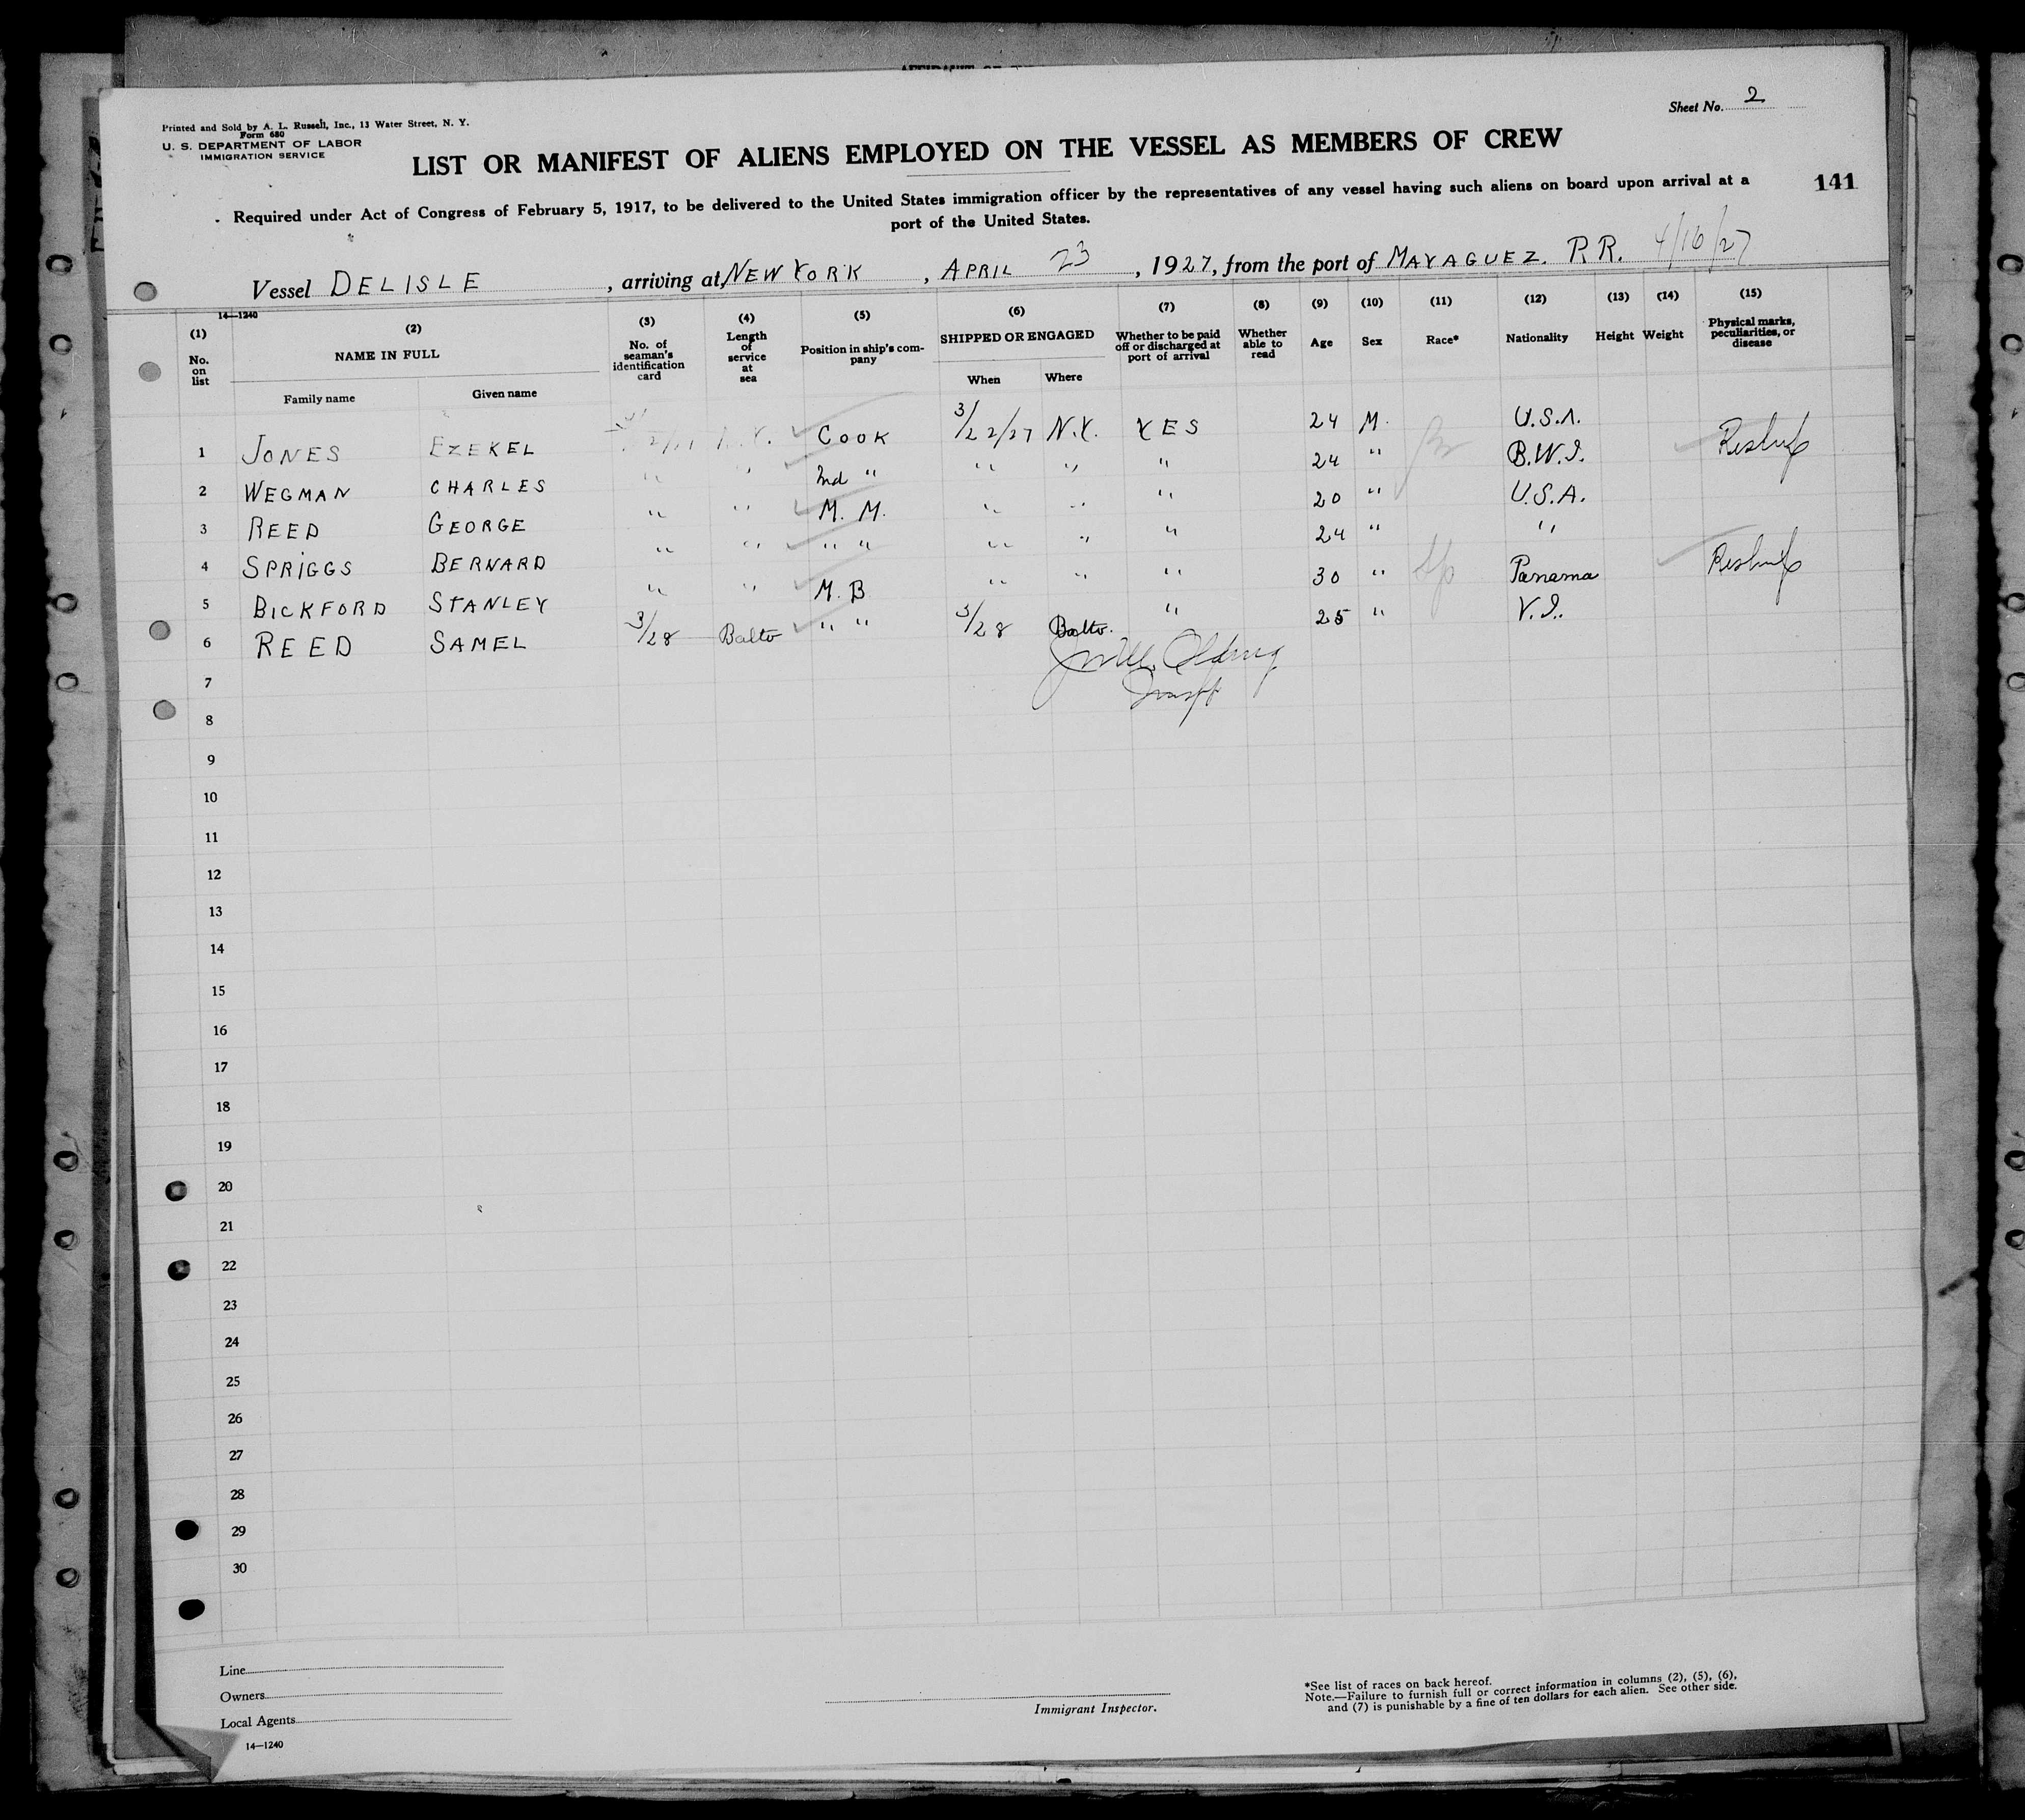 Sheet No. 2
Printed and Sold by A. L. Russell, Inc., 13 Water Street, N. Y.
Form 680
U. S. DEPARTMENT OF LABOR
IMMIGRATION SERVICE
LIST OR MANIFEST OF ALIENS EMPLOYED ON THE VESSEL AS MEMBERS OF CREW
141
Required under Act of Congress of February 5, 1917, to be delivered to the United States immigration officer by the representatives of any vessel having such aliens on board upon arrival at a
port of the United States.
Vessel DELISLE, arriving at NEW YORK, APRIL 23, 1927, from the port of MAYAGUEZ. P.R. 4/16/27
14—1240
(1) No. on list
(2) NAME IN FULL
Family name Given name
(3) No. of seaman's identification card
(4) Length of service at sea
(5) Position in ship's company
(6) SHIPPED OR ENGAGED
When Where
(7) Whether to be paid off or discharged at port of arrival
(8) Whether able to read
(9) Age
(10) Sex
(11) Race*
(12) Nationality
(13) Height
(14) Weight
(15) Physical marks, peculiarities, or disease
1 JONES EZEKEL COOK 3/22/27 N.Y. YES 24 M. U.S.A.
2 WEGMAN CHARLES " " 2nd " " " " 24 " B.W.I.
3 REED GEORGE " " M. M. " " " 20 " U.S.A.
4 SPRIGGS BERNARD " " " " " " " 24 " "
5 BICKFORD STANLEY " " M. B " " " 30 " Panama
6 REED SAMEL 3/28 Balto " " 3/28 Balto. " 25 " V.I.
7
8
9
10
11
12
13
14
15
16
17
18
19
20
21
22
23
24
25
26
27
28
29
30
Line
Owners
Local Agents
14—1240
Immigrant Inspector.
*See list of races on back hereof.
Note.—Failure to furnish full or correct information in columns (2), (5), (6),
and (7) is punishable by a fine of ten dollars for each alien. See other side.